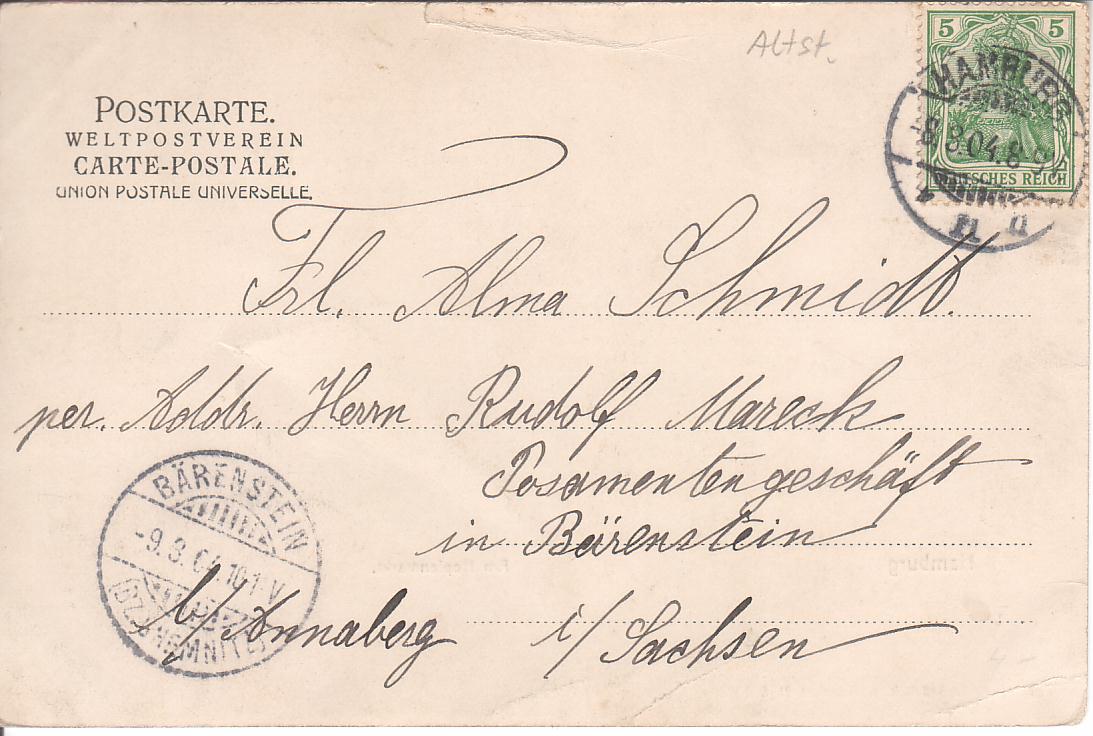 Altst.
5 5
DEUTSCHES REICH
HAMBURG
-8.8.04.8-9
POSTKARTE.
WELTPOSTVEREIN
CARTE-POSTALE.
UNION POSTALE UNIVERSELLE.
Frl. Alma Schmidt.
per. Addr. Herrn Rudolf Mareck
Posamentengeschäft
in Bärenstein
b/Annaberg i/Sachsen
BÄRENSTEIN
-9.8.04
(BZ. CHEMNITZ)
Hamburg